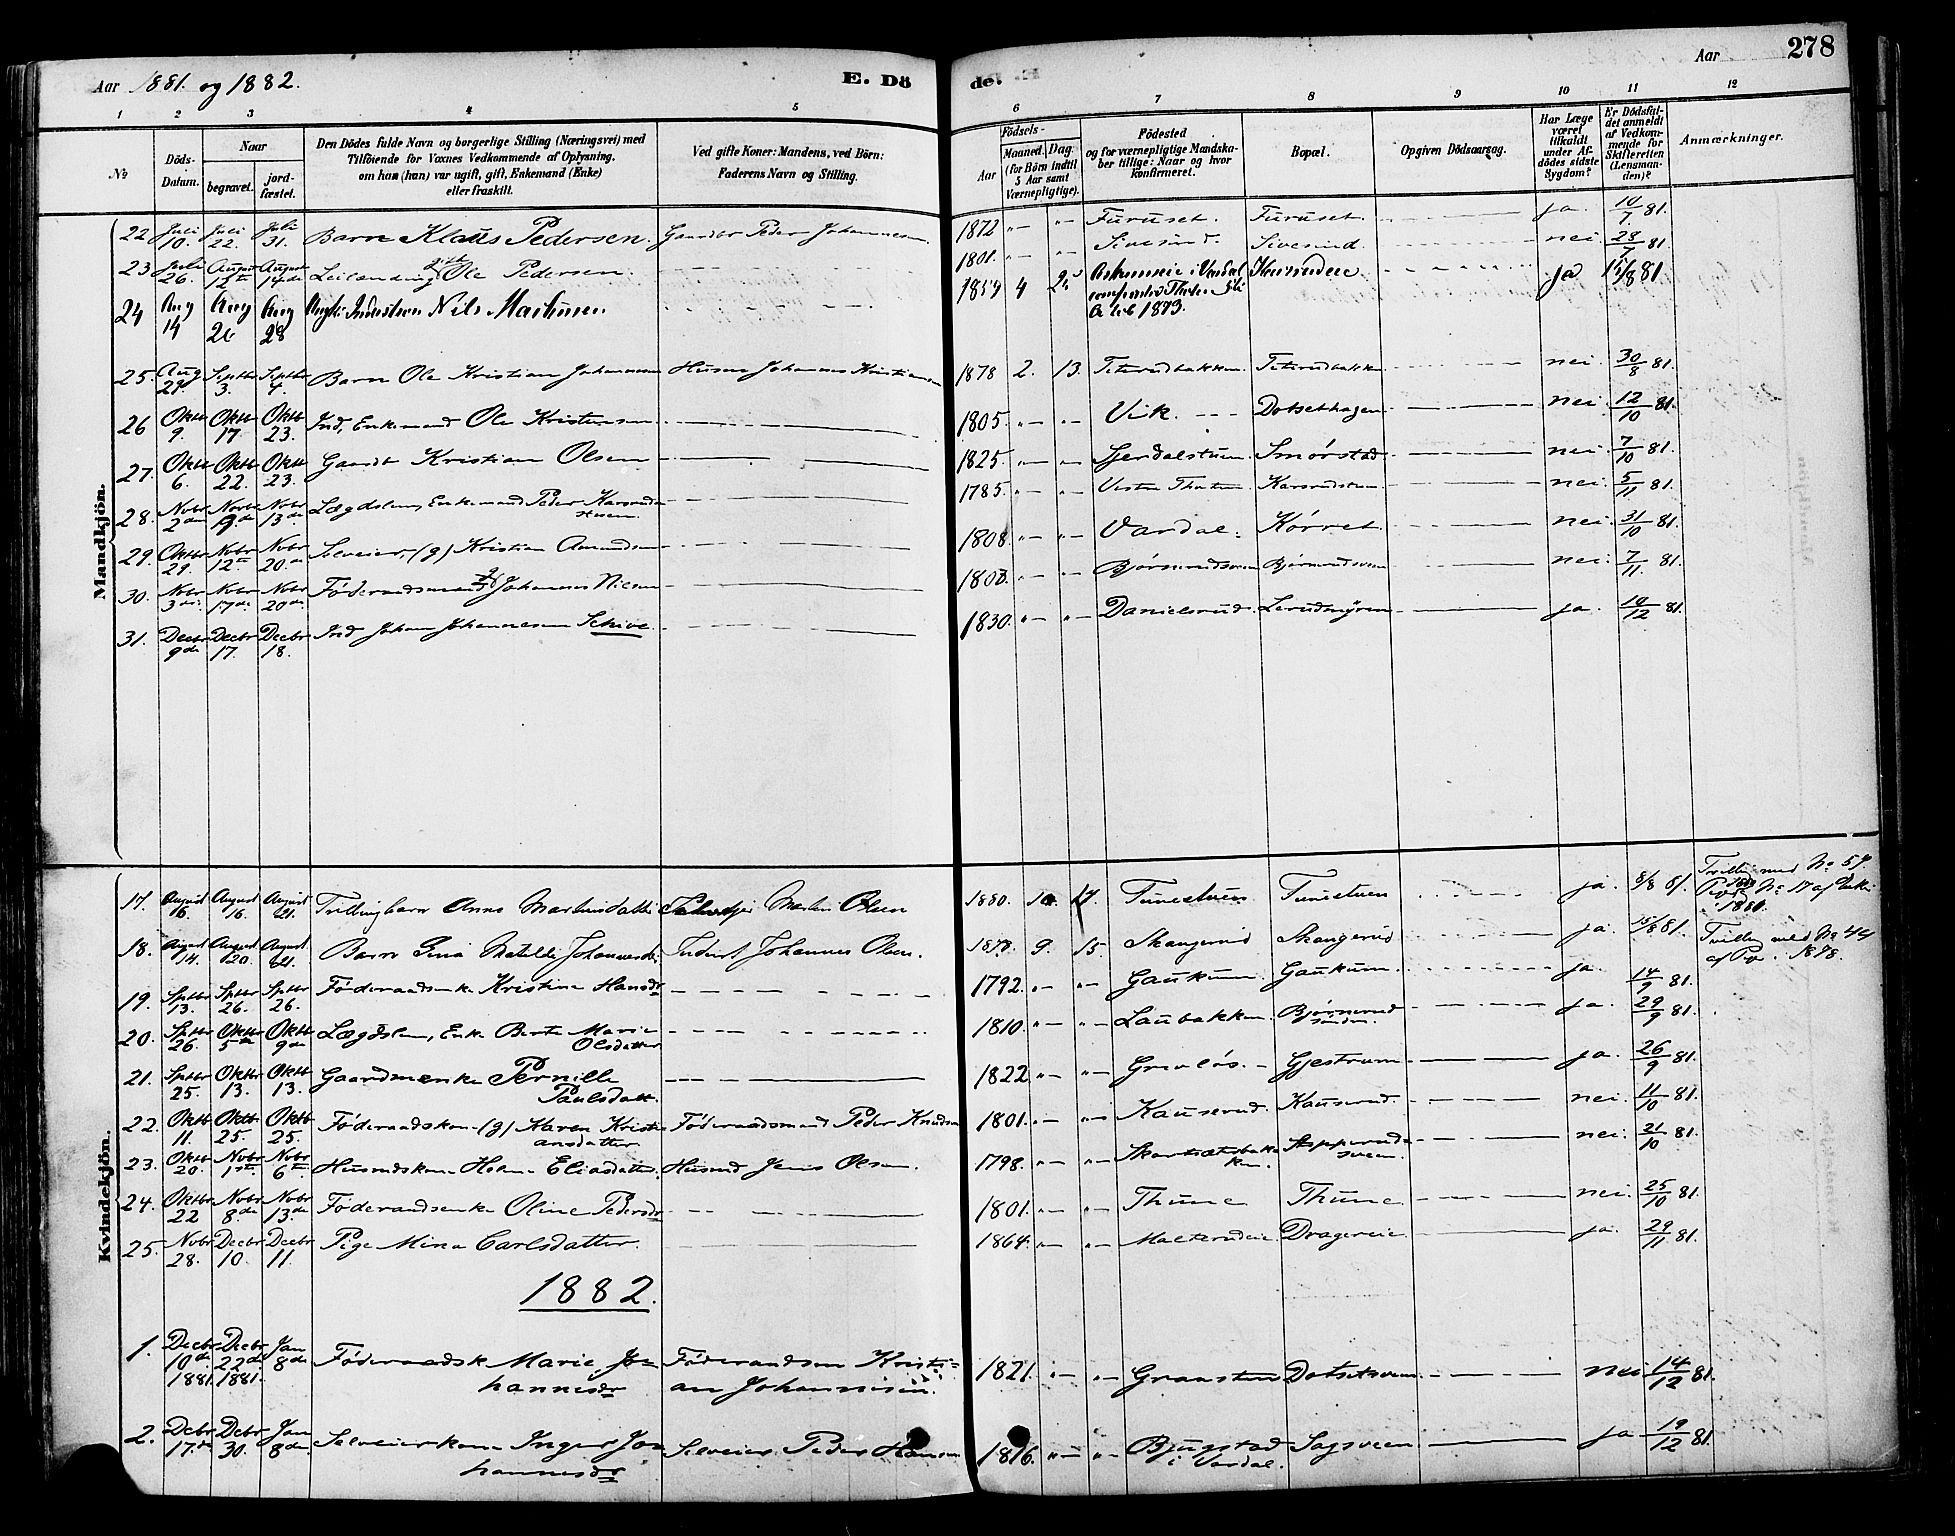 Aar 1881. og 1882.
E. Dö
de.
Aar
278
1 2 3 4 5 6 7 8 9 10 11 12
No
Döds-Datum.
Naar
begravet.
jord-fæstet.
Den Dödes fulde Navn og borgerlige Stilling (Næringsvei) med
Tilföiende for Voxnes Vedkommende af Oplysning,
om han (hun) var ugift, gift, Enkemand (Enke)
eller fraskilt.
Ved gifte Koner: Mandens, ved Börn:
Faderens Navn og Stilling.
Födsels-
Aar
Maaned. Dag.
(for Börn indtil
5 Aar samt
Værnepligtige).
Födested
og for værnepligtige Mandska-
ber tillige: Naar og hvor
konfirmeret.
Bopæl.
Opgiven Dödsaarsag.
Har Læge
været
tilkaldt
under Af-
dödes sidste
Sygdom?
Er Dödsfal-
det anmeldt
af Vedkom-
mende for
Skifteretten
(Lensman-
den)?
Anmærkninger.
Mandkjön.
22 Juli 10. Juli 22. Juli 31. Barn Klaus Pedersen. Gaardbr Peder Johannesen 1872 Furuset. Furuset ja 10/7 81.
23 Juli 26. August 12te August 14de Leilending gift Ole Pedersen. 1801. Sivesind. Sivesind. nei 28/7 81
24 Aug 14 Aug 26 Aug 28 Nils Martinsen 4 i Vardal 1873. ja 15/8 81
25. Aug 29 Septbr 3. Septbr 4. Barn Ole Kristian Johannesen Husm Johannes Kristiansen 1878 2. 13. Teterudbakken Teterudbakken nei 30/8 81.
26 Oktb 9. Oktb 17 Oktb 23. Ind, Enkemand Ole Kristensen 1805. Viik. Dotsethagen nei 12/10 81.
27. Oktb 6. Oktb 22. Oktb 23. Gaardb Kristian Olsen 1825. Smørstad nei 7/10 81.
28. Novbr 2den Novbr 9de Novbr 13de Lægdslem, Enkemand Peder 1785. Vestre Thoten nei 5/11 81
29. Oktbr 29. Novbr 12te Novbr 20de Selveier, (g) Kristian Amundsen 1808. Vardal. Kørret nei 31/10 81
30. Novbr 3die Novbr 17de Novbr 20de Føderaadsmand g Johannes Nielsen Bjørnerudsveen Bjørnerudsveen nei 7/11. 81.
31. Decbr 9de Decbr 17. Decbr 18. Ind Johan Johannesen Schive. 1830. Danielsrud Lerudmyren ja 10/12 81.
Kvindekjön.
17. August 16. August 16. August 21. Trillingbarn Anne Martinsdatter Martin Olsen 1880. 10. 17. Tunestuen Tunestuen ja. 8/8 81. No 57
18. August 14. August 20. August 21. Barn Gina Matilde Johannesdr Inderst Johannes Olsen. 1878. 9. 15. Skangerud Skangerud ja 15/8 81. Tvilling med No 44 1878.
19. Sptbr 13. Sptbr 26. Sptbr 26. Føderaadsenke Kristine Hansdr 1792. Gaukum Gaukum. ja. 14/9 81.
20. Sptbr 26. Oktb 5te Oktb 9de Lægdslem, Enke Berte Marie Olsdatter 1810. Laubakken Bjørnerud ja. 29/9 81.
21. Sptbr 25. Oktbr 13. Oktb 13. Gaardmenke Pernille Paulsdatt. 1822. Grøvløs. Gjestrum ja. 26/9 81.
22. Oktb 11. Oktb 25. Oktb 25. Føderaadskone (g) Karen Kristiansdatter Føderaadsmand Peder Knudsen 1801. Kauserud. Kauserud nei. 11/10 81.
23. Oktb 20. Novbr 1ste Novbr 6te Husmdskone Helene Eliasdatter. Husmd Jens Olsen. 1798. nei. 21/10 81.
24. Oktbr 22 Novbr 8de Novbr 13de Føderaadsenke Oline Pedersdr 1801. Thune Thune nei. 25/10 81.
25. Novbr 28. Decbr 10. Decbr 11. Pige Mina Carlsdatter. 1864. Dragereie ja. 29/11 81.
1882.
1. Decbr 10de 1881. Decbr 22de 1881. Jan 8de Føderaadsk Marie Johannesdr Føderaadsm Kristian Johannesen. 1821. Graasteen Dotsetsveen nei 14/12 81.
2. Debr 17. Debr 30. Jan 8de Selveierkone Inger Johannesdr Selveier Peder Hansen 1816. Bjugstad i Vardal. Sagsveen ja 19/12 81.